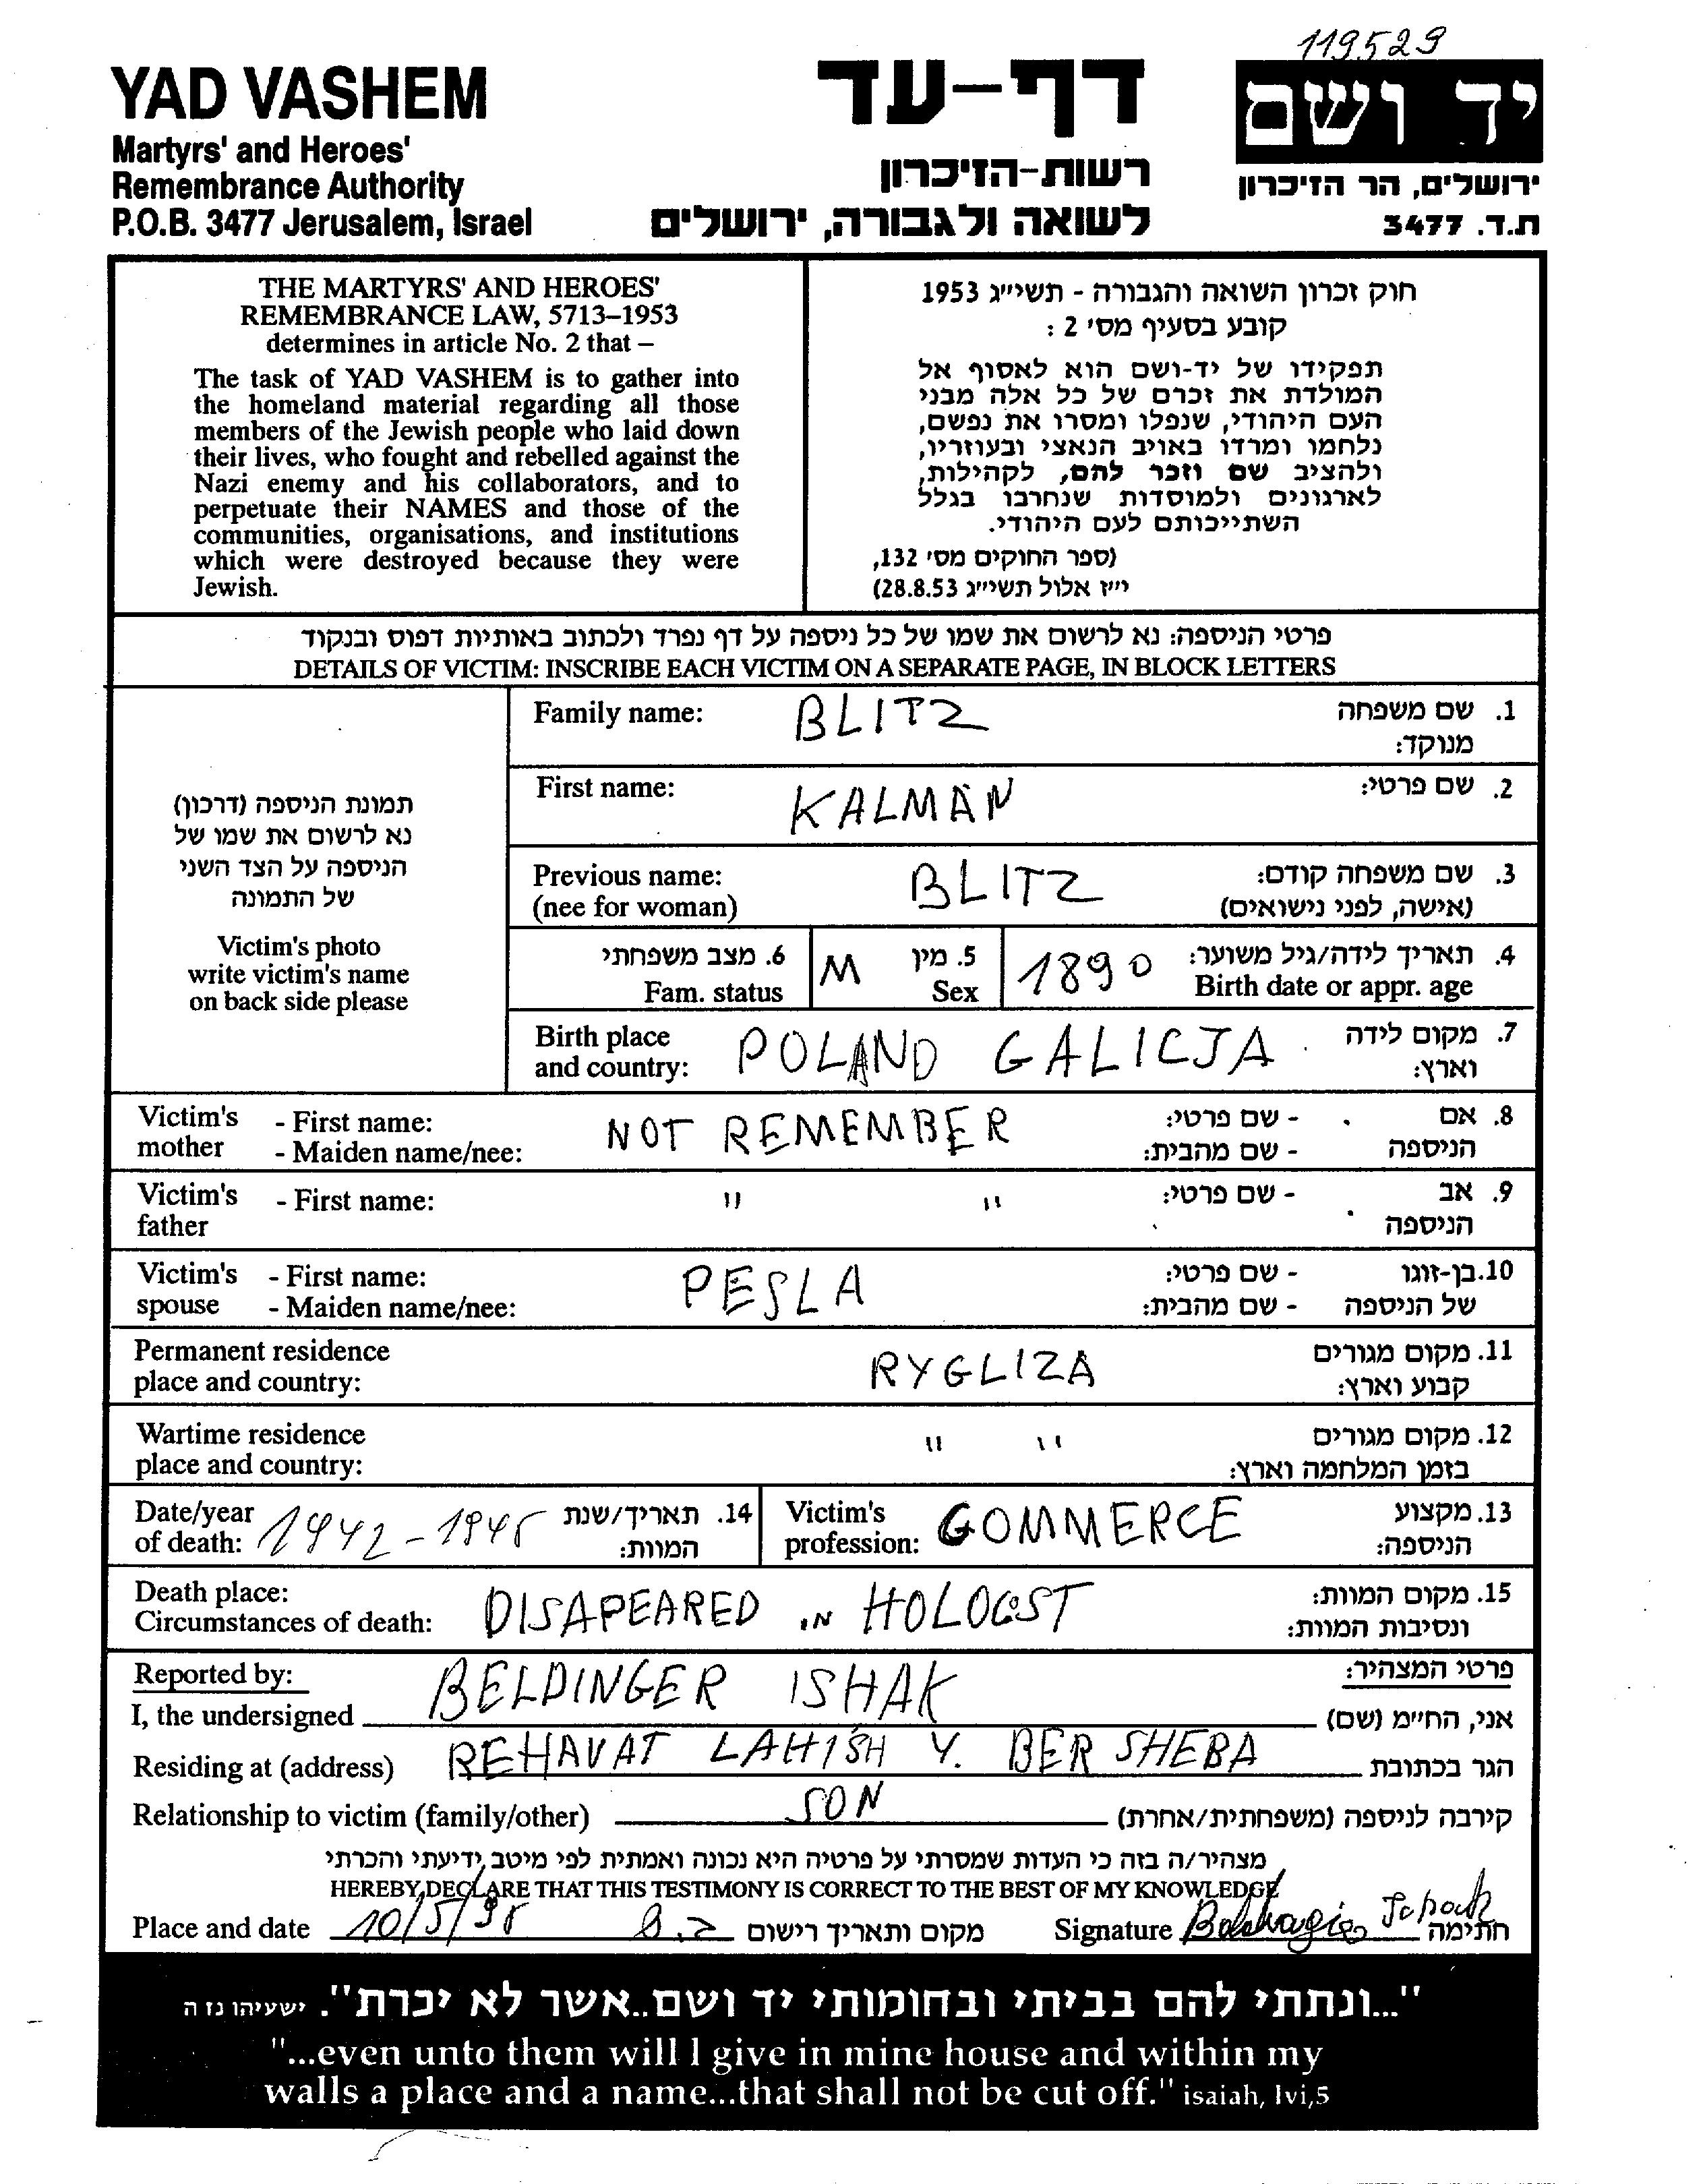 119529
YAD VASHEM
Martyrs' and Heroes'
Remembrance Authority
P.O.B. 3477 Jerusalem, Israel
דף-עד
רשות-הזיכרון
לשואה ולגבורה, ירושלים
יד ושם
ירושלים, הר הזיכרון
ת.ד. 3477
THE MARTYRS' AND HEROES'
REMEMBRANCE LAW, 5713–1953
determines in article No. 2 that –
The task of YAD VASHEM is to gather into
the homeland material regarding all those
members of the Jewish people who laid down
their lives, who fought and rebelled against the
Nazi enemy and his collaborators, and to
perpetuate their NAMES and those of the
communities, organisations, and institutions
which were destroyed because they were
Jewish.
חוק זכרון השואה והגבורה - תשי"ג 1953
קובע בסעיף מס' 2 :
תפקידו של יד-ושם הוא לאסוף אל
המולדת את זכרם של כל אלה מבני
העם היהודי, שנפלו ומסרו את נפשם,
נלחמו ומרדו באויב הנאצי ובעוזריו,
ולהציב שם וזכר להם, לקהילות,
לארגונים ולמוסדות שנחרבו בגלל
השתייכותם לעם היהודי.
(ספר החוקים מס' 132,
י"ז אלול תשי"ג 28.8.53)
פרטי הניספה: נא לרשום את שמו של כל ניספה על דף נפרד ולכתוב באותיות דפוס ובנקוד
DETAILS OF VICTIM: INSCRIBE EACH VICTIM ON A SEPARATE PAGE, IN BLOCK LETTERS
תמונת הניספה (דרכון)
נא לרשום את שמו של
הניספה על הצד השני
של התמונה
Victim's photo
write victim's name
on back side please
Family name: BLITZ 1. שם משפחה
מנוקד:
First name: KALMAN 2. שם פרטי:
Previous name: BLITZ 3. שם משפחה קודם:
(nee for woman) (אישה, לפני נישואים)
6. מצב משפחתי M 5. מין 1890 4. תאריך לידה/גיל משוער:
Fam. status Sex Birth date or appr. age
Birth place POLAND GALICJA 7. מקום לידה
and country: וארץ:
Victim's - First name: NOT REMEMBER - שם פרטי: 8. אם
mother - Maiden name/nee: - שם מהבית: הניספה
Victim's - First name: " " - שם פרטי: 9. אב
father הניספה
Victim's - First name: PESLA - שם פרטי: 10.בן-זוגו
spouse - Maiden name/nee: - שם מהבית: של הניספה
Permanent residence RYGLIZA 11. מקום מגורים
place and country: קבוע וארץ:
Wartime residence " " 12. מקום מגורים
place and country: בזמן המלחמה וארץ:
Date/year 1942-1945 14. תאריך/שנת Victim's GOMMERCE 13. מקצוע
of death: המוות: profession: הניספה:
Death place: 15. מקום המוות:
Circumstances of death: DISAPEARED IN HOLOCST ונסיבות המוות:
Reported by: BELDINGER ISHAK פרטי המצהיר:
I, the undersigned אני, הח"מ (שם)
Residing at (address) REHAVAT LAHISH Y. BER SHEBA הגר בכתובת
Relationship to victim (family/other) SON קירבה לניספה (משפחתית/אחרת)
מצהיר/ה בזה כי העדות שמסרתי על פרטיה היא נכונה ואמתית לפי מיטב ידיעתי והכרתי
HEREBY DECLARE THAT THIS TESTIMONY IS CORRECT TO THE BEST OF MY KNOWLEDGE
Place and date 10/5/98 מקום ותאריך רישום Signature חתימה
"...ונתתי להם בביתי ובחומותי יד ושם..אשר לא יכרת". ישעיהו נז ה
"...even unto them will I give in mine house and within my
walls a place and a name...that shall not be cut off." isaiah, lvi,5